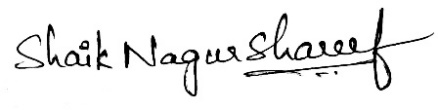 Shaik Nagur Shareef